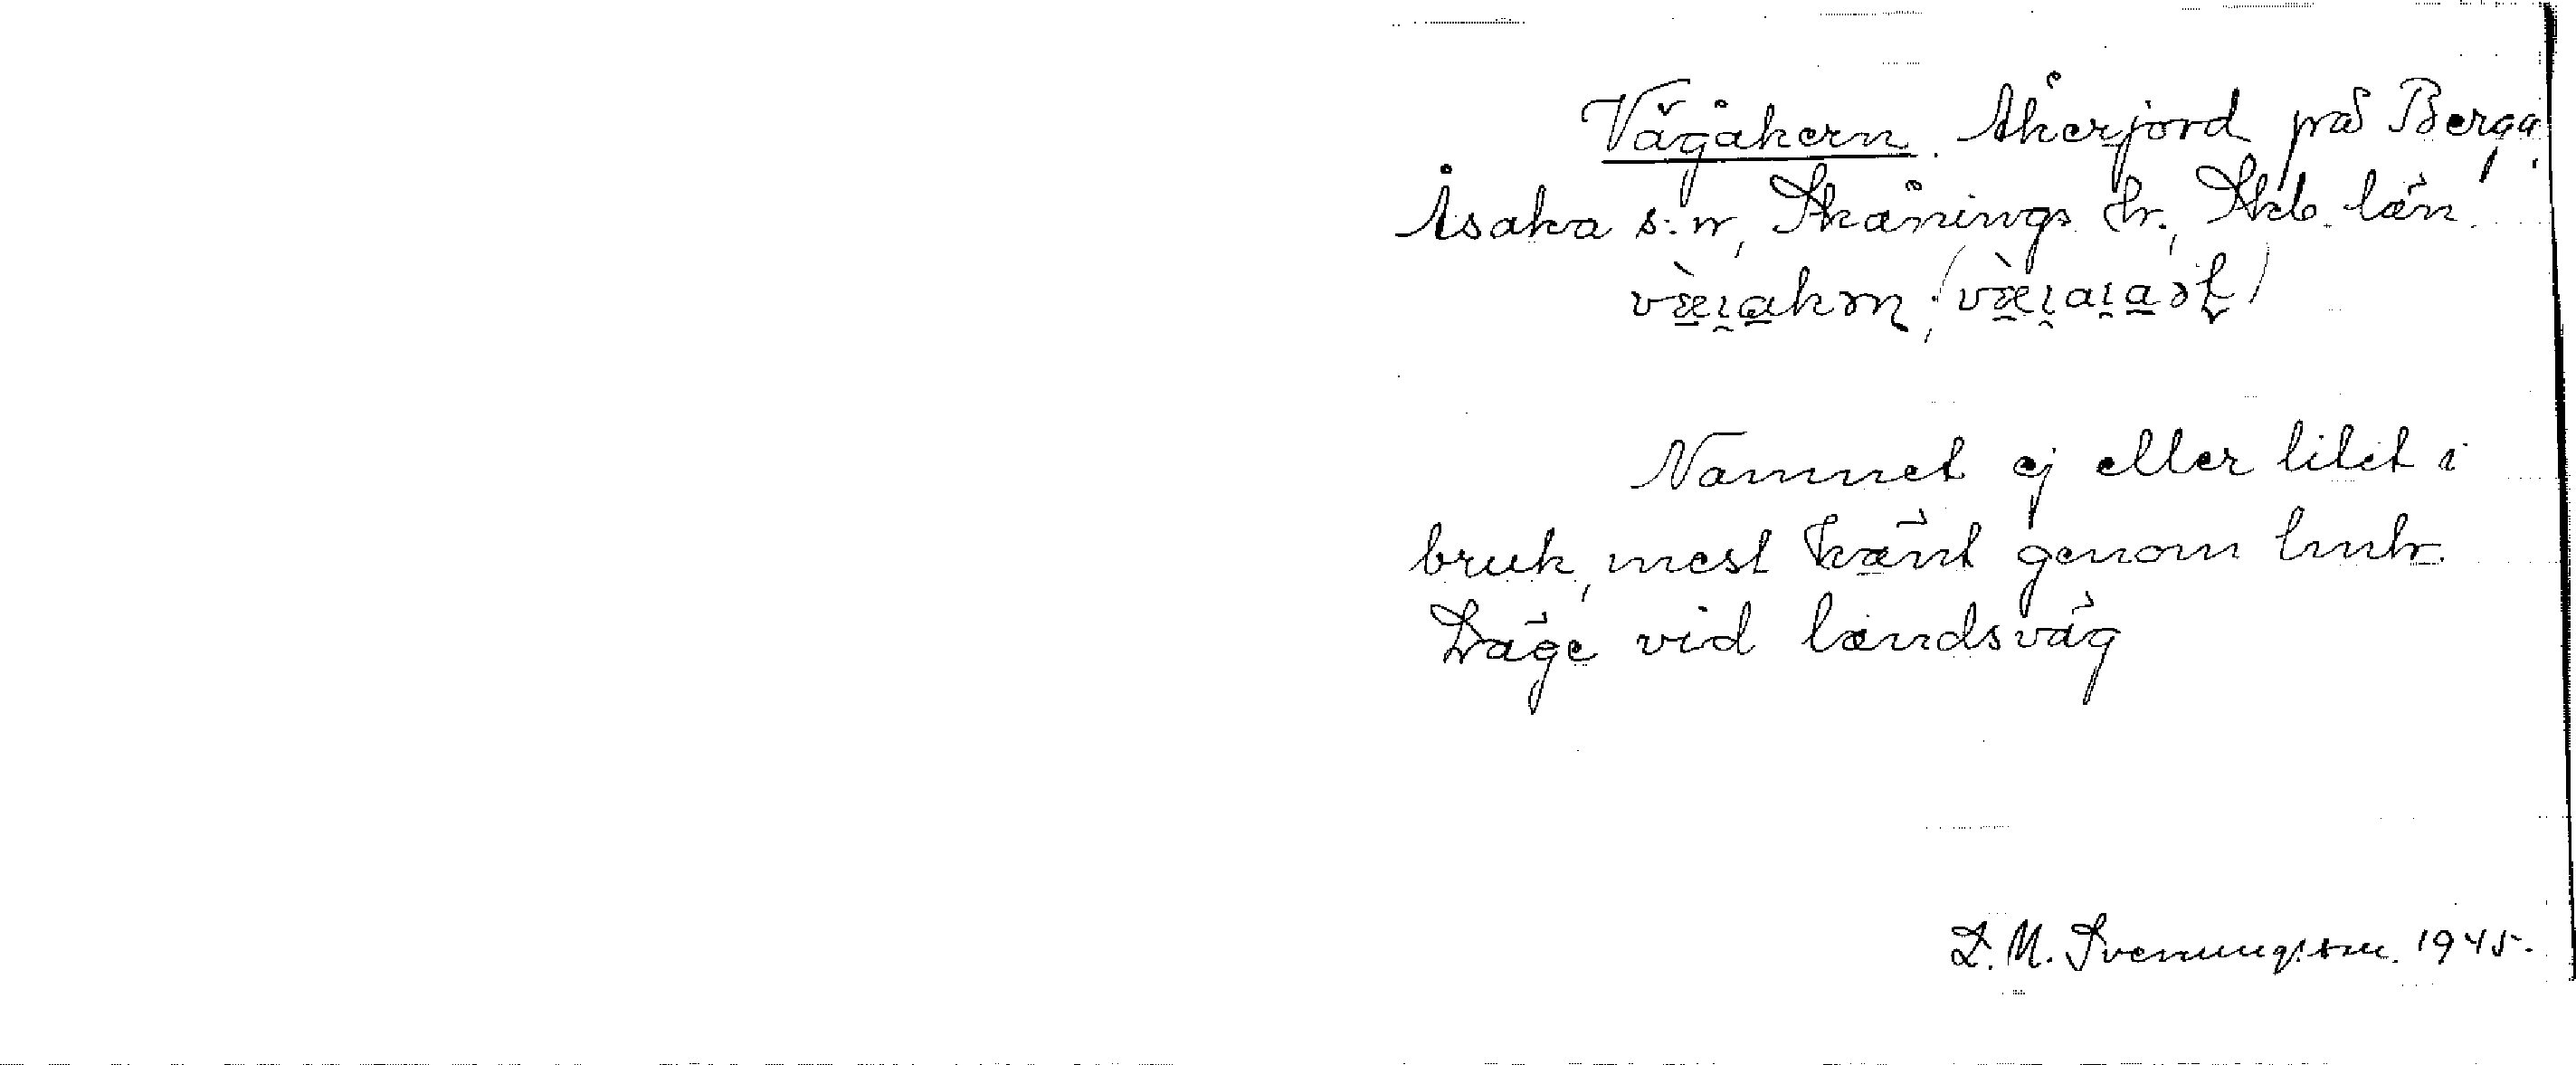 Vägåkern. Åkerjord på Berga,
Åsaka s:n, Skånings hr., Skb. län.
Namnet ej eller litet i
bruk, mest känt genom lmtr.
Läge vid landsväg
S. M. Svenungsson. 1945.